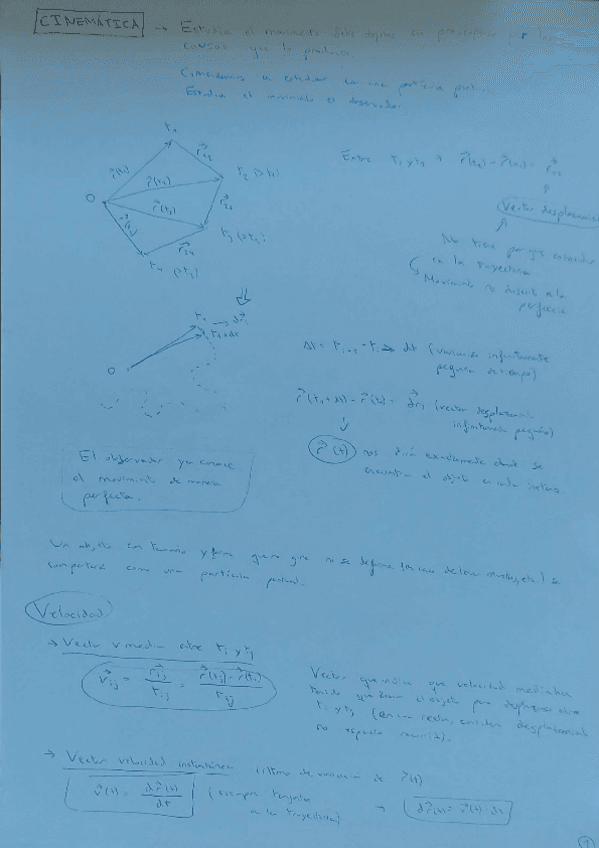 CINEMÁTICA → Estudia el movimiento de los objetos sin preocuparse por las
causas que lo producen.
Comenzamos a estudiar con una partícula puntual.
Estudia el movimiento el observador.
t₁
r⃗₁₂
r⃗(t₁)
t₂ (>t₁)
r⃗(t₂)
O
r⃗(t₃)
r⃗₂₃
t₃ (>t₂)
r⃗(t₄)
r⃗₃₄
t₄ (>t₃)
Entre t₁ y t₂ → r⃗(t₂) - r⃗(t₁) = r⃗₁₂
Vector desplazamiento
No tiene por qué coincidir
con la trayectoria
Movimiento no descrito a la
perfección
t₁ → dr⃗₁
t₁+dt
O
Δt = tᵢ₊₁ - tᵢ → dt (variación infinitamente
pequeña de tiempo)
r⃗(t₁+dt) - r⃗(t₁) = dr⃗₁ (vector desplazamiento
infinitamente pequeño)
r⃗(t) nos dirá exactamente dónde se
encuentra el objeto en cada instante
El observador ya conoce
el movimiento de manera
perfecta.
Un objeto con tamaño y forma que no gire ni se deforme se
comportará como una partícula puntual.
Velocidad
→ Vector v media entre tᵢ y tⱼ
v⃗ᵢⱼ = r⃗ᵢⱼ / tᵢⱼ = (r⃗(tⱼ) - r⃗(tᵢ)) / tᵢⱼ
Vector que indica que velocidad media ha
tenido que llevar el objeto para desplazarse entre
tᵢ y tⱼ (desplazamiento
no espacio recorrido).
→ Vector velocidad instantánea (ritmo de variación de r⃗(t))
v⃗(t) = dr⃗(t) / dt (siempre tangente
a la trayectoria) → dr⃗(t) = v⃗(t) · dt
1